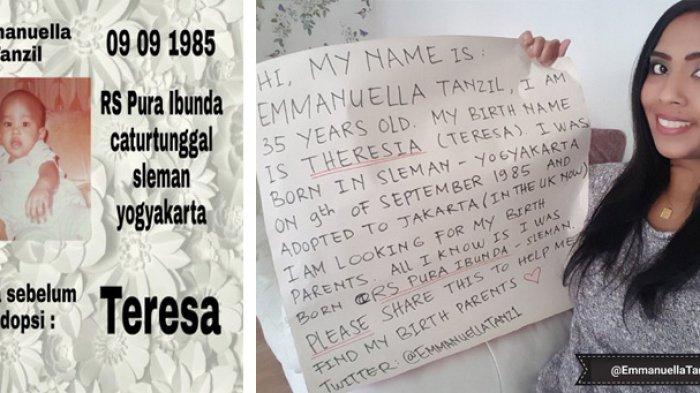 Tanzil
09 09 1985
RS Pura Ibunda
caturtunggal
sleman
yogyakarta
sebelum
Teresa
HI, MY NAME IS :
EMMANUELLA TANZIL, I AM
35 YEARS OLD. MY BIRTH NAME
IS THERESIA (TERESA). I WAS
BORN IN SLEMAN - YOGYAKARTA
ON 9th OF SEPTEMBER 1985 AND
ADOPTED TO JAKARTA (IN THE UK NOW)
I AM LOOKING FOR MY BIRTH
PARENTS. ALL I KNOW IS I WAS
BORN @RS PURA IBUNDA - SLEMAN.
PLEASE SHARE THIS TO HELP ME
FIND MY BIRTH PARENTS ♡
TWITTER: @EMMANUELLATANZ1